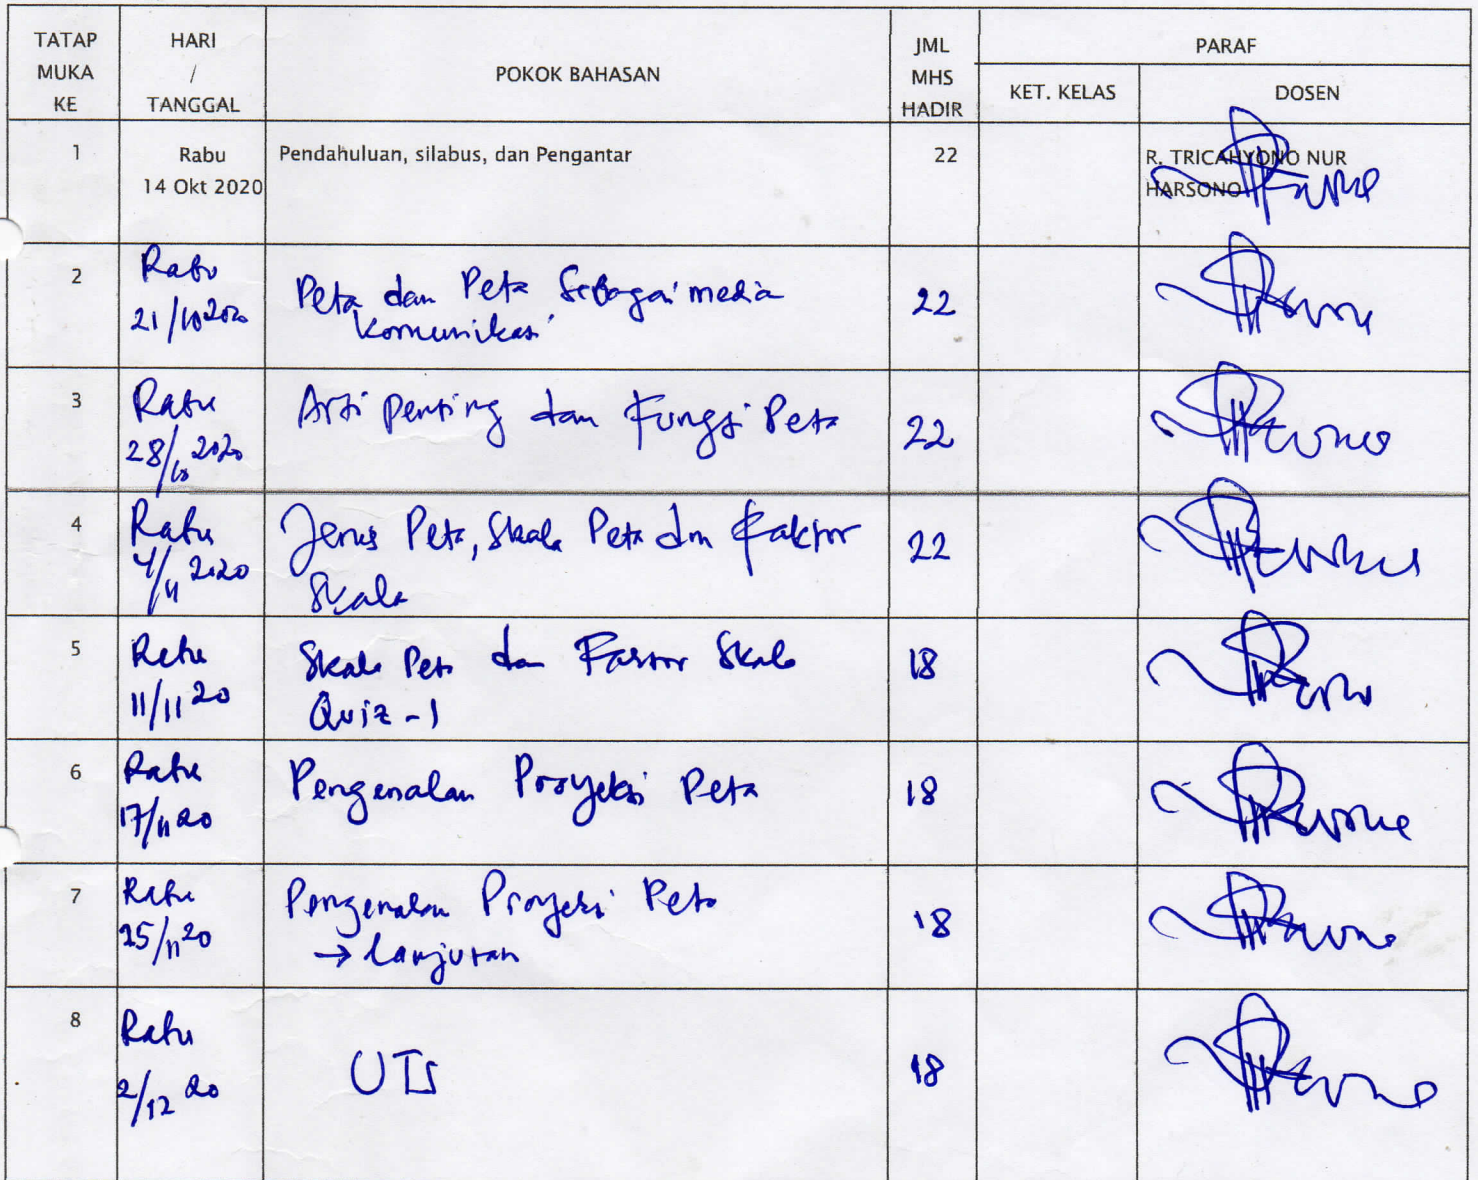 TATAP MUKA KE
HARI / TANGGAL
POKOK BAHASAN
JML MHS HADIR
PARAF
KET. KELAS
DOSEN
1
Rabu
14 Okt 2020
Pendahuluan, silabus, dan Pengantar
22
R. TRICAHYONO NUR
HARSONO
2
Rabu
21/10 2020
Peta dan Peta Sebagai media
komunikasi
22
3
Rabu
28/10 2020
Arti penting dan Fungsi Peta
22
4
Rabu
4/11 2020
Jenis Peta, Skala Peta dan Faktor
Skala
22
5
Rabu
11/11 20
Skala Peta dan Faktor Skala
Quiz-1
18
6
Rabu
17/11 20
Pengenalan Proyeksi Peta
18
7
Rabu
25/11 20
Pengenalan Proyeksi Peta
→ lanjutan
18
8
Rabu
2/12 20
UTS
18